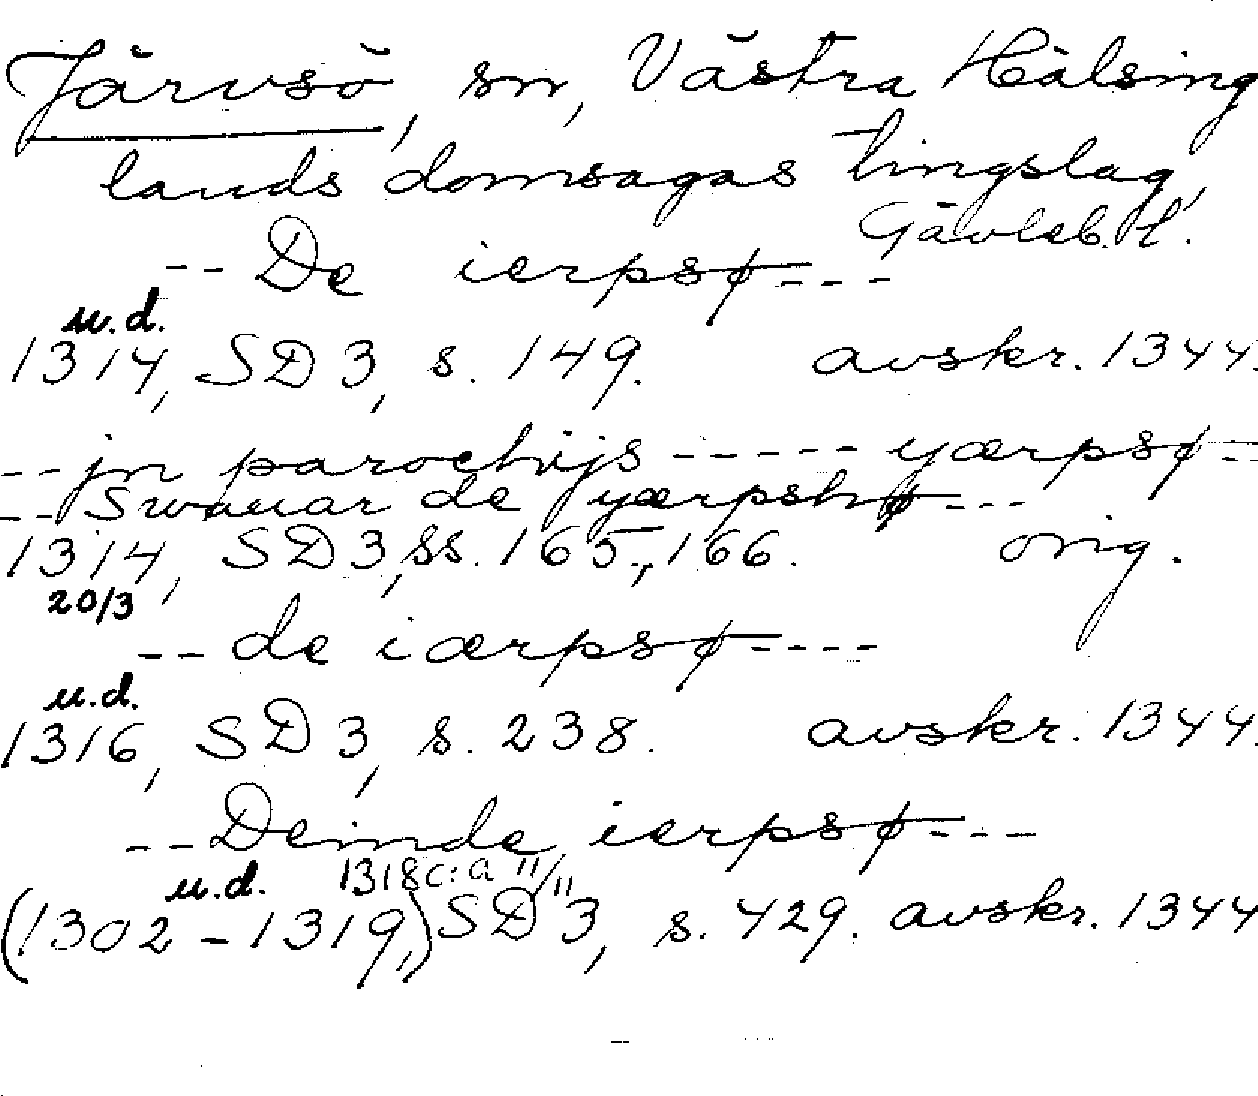 Järvsö, sn, Västra Hälsing
lands domsagas tingslag,
Gävleb. l.
-- De ierpsø ---
u.d.
1314, SD 3, s. 149. avskr. 1344.
-- jn parochijs ----- yærpsø --
-- Swanar de yærpshø ---
1314, SD 3, ss. 165, 166. orig.
20/3
-- de iærpsø ----
u.d.
1316, SD 3, s. 238. avskr. 1344.
-- Deinde ierpsø ---
u.d. 1318 c:a 11/11
(1302 - 1319,) SD 3, s. 429. avskr. 1344